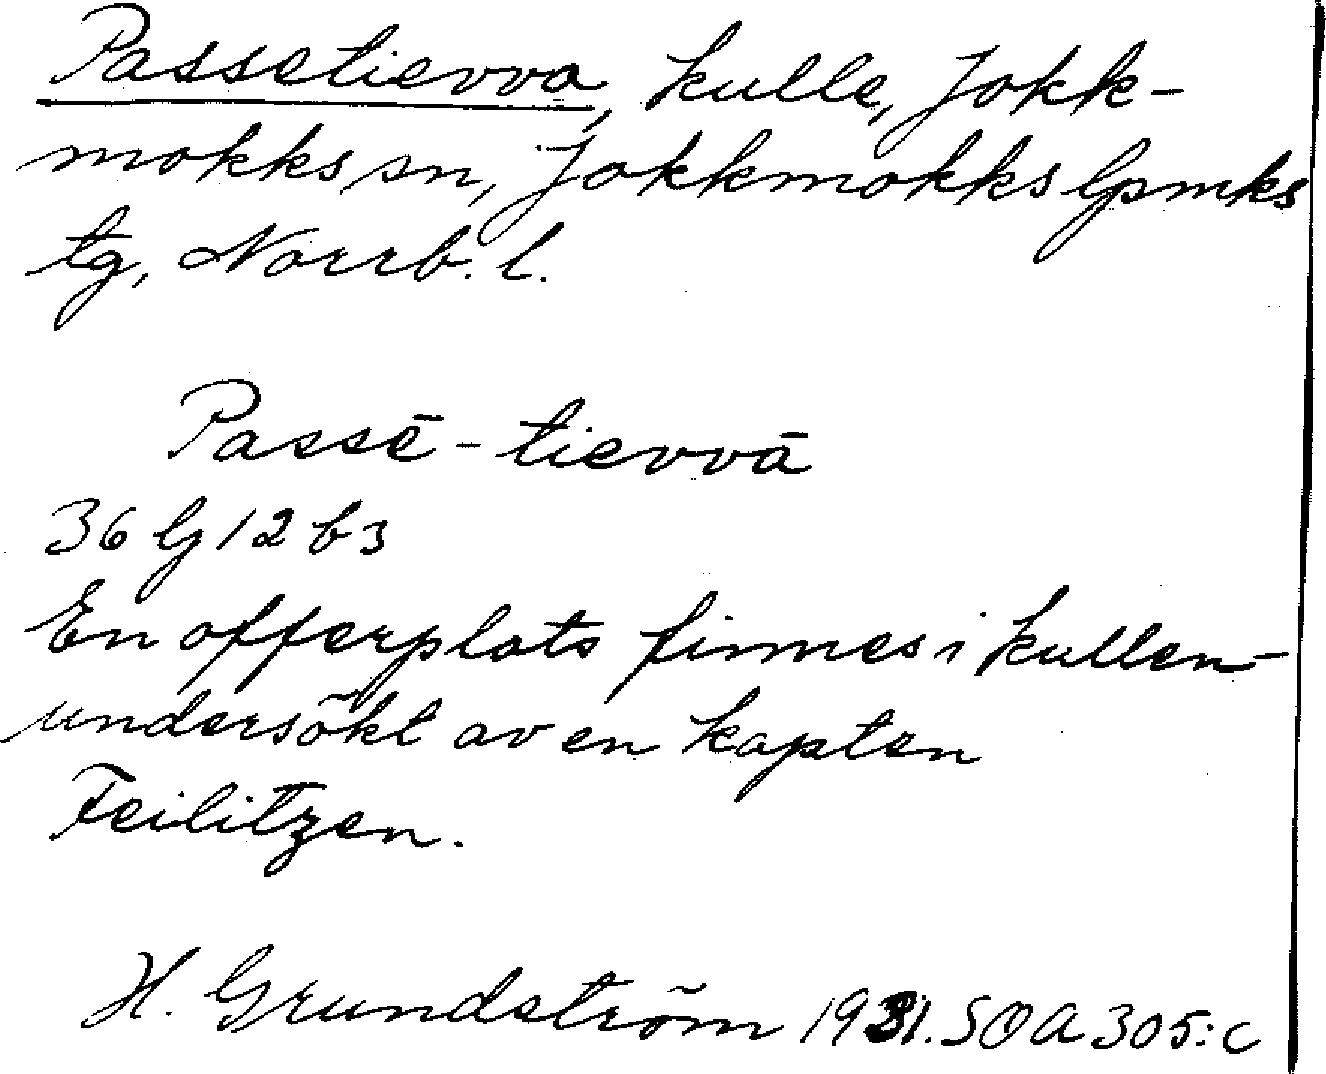 Passetievva, kulle, Jokk-
mokks sn, Jokkmokks lpmks
tg, Norrb. l.
Passē-tievvā
36 Gj 12 b 3
En offerplats finnes i kullen -
undersökt av en kapten
Feilitzen.
H. Grundström 1931. SOA 305:c